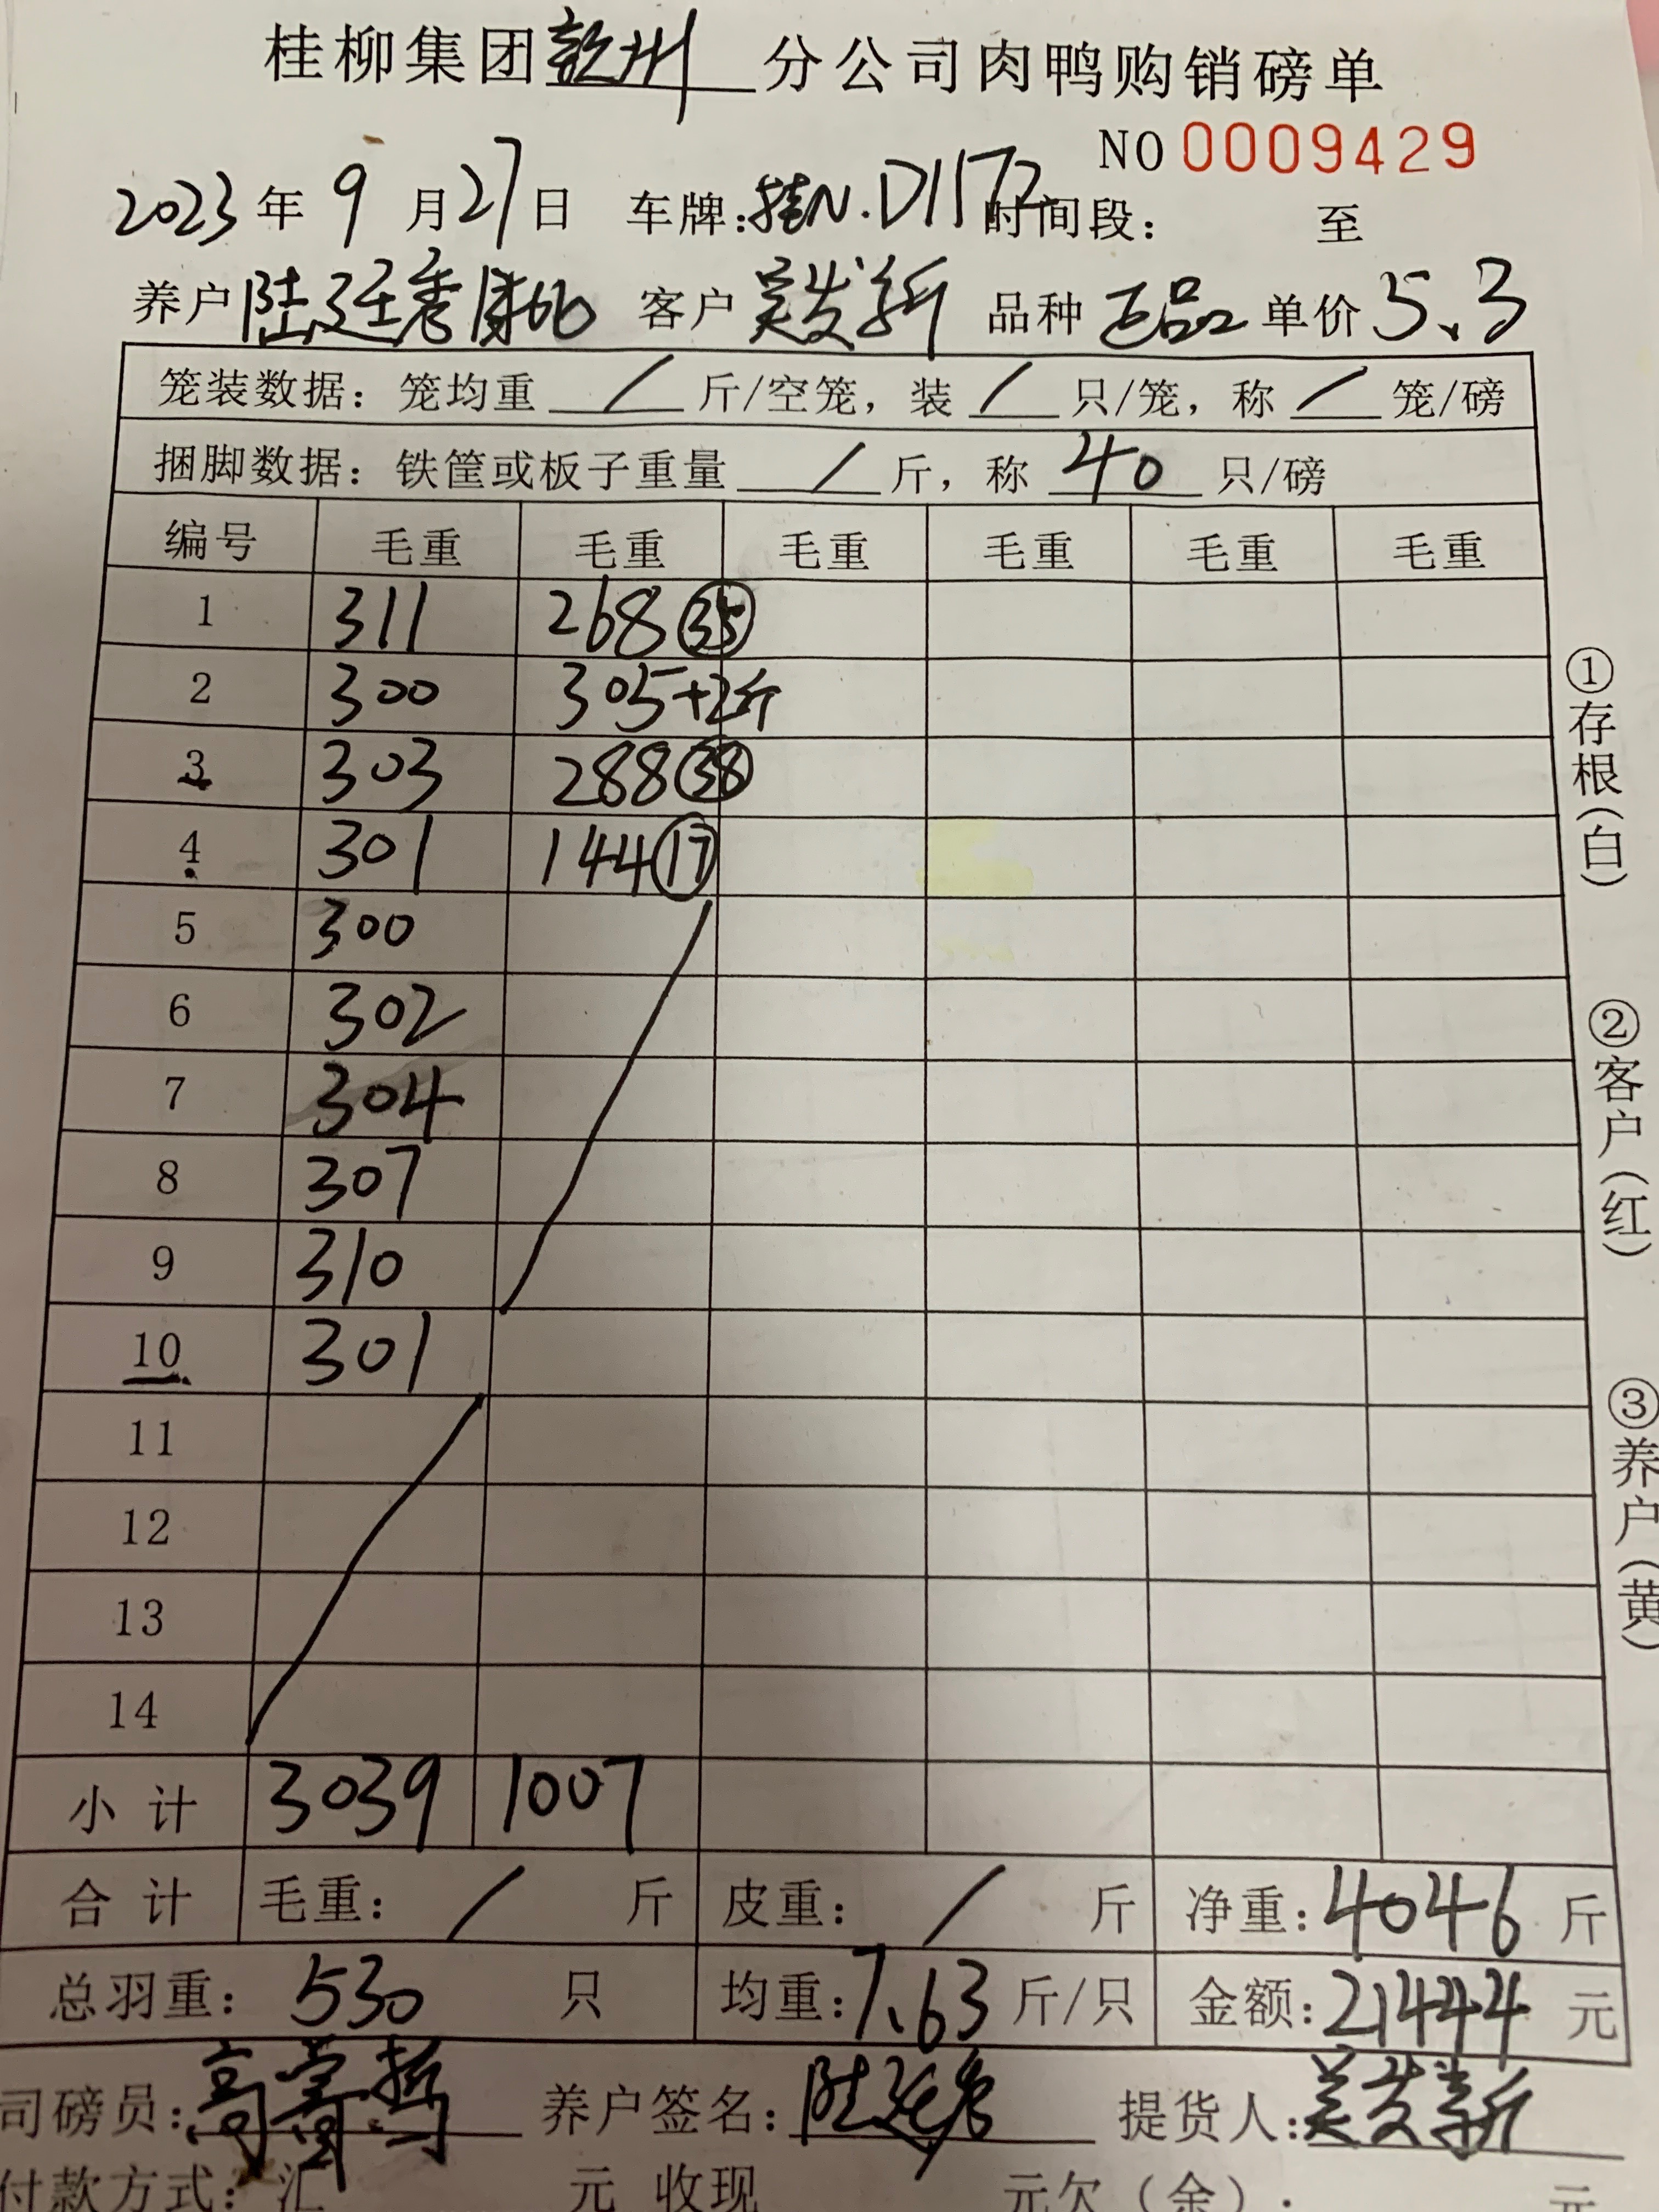 桂柳集团钦州分公司肉鸭购销磅单
NO 0009429
2023年9月27日 车牌:桂N.D1172 时间段: 至
养户陆廷秀 客户吴发新 品种 正品 单价5.3
笼装数据: 笼均重 / 斤/空笼, 装 / 只/笼, 称 / 笼/磅
捆脚数据: 铁筐或板子重量 / 斤, 称 40 只/磅
编号 毛重 毛重 毛重 毛重 毛重 毛重
1 311 268 ㉟
2 300 305+2斤
3 303 288 ㊳
4 301 144 ⑰
5 300
6 302
7 304
8 307
9 310
10 301
11
12
13
14
小计 3039 1007
合计 毛重: / 斤 皮重: / 斤 净重: 4046 斤
总羽重: 530 只 均重: 7.63 斤/只 金额: 21444 元
司磅员: 高 养户签名: 陆廷秀 提货人: 吴发新
付款方式: 汇 元 收现 元欠(余): 元
①存根(白)
②客户(红)
③养户(黄)